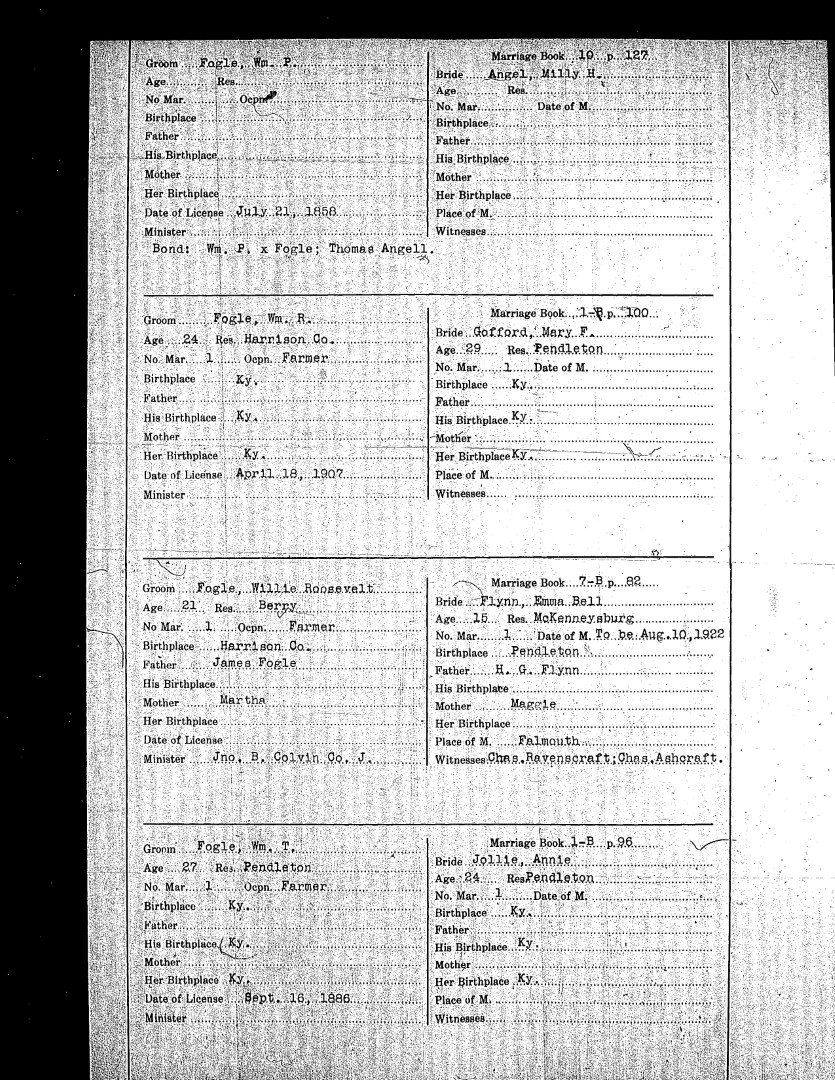 Groom Fogle, Wm. P.
Age Res.
No Mar. Ocpn
Birthplace
Father
His Birthplace
Mother
Her Birthplace
Date of License July 21, 1858
Minister
Marriage Book 10 p. 127
Bride Angel, Milly H.
Age Res.
No. Mar. Date of M.
Birthplace
Father
His Birthplace
Mother
Her Birthplace
Place of M.
Witnesses
Bond: Wm. P. x Fogle; Thomas Angell.
Groom Fogle, Wm. R.
Age 24 Res. Harrison Co.
No. Mar. 1 Ocpn. Farmer
Birthplace Ky.
Father
His Birthplace Ky.
Mother
Her Birthplace Ky.
Date of License April 18, 1907
Minister
Marriage Book 1-B p. 100
Bride Gofford, Mary F.
Age 29 Res. Pendleton
No. Mar. 1 Date of M.
Birthplace Ky.
Father
His Birthplace Ky.
Mother
Her Birthplace Ky.
Place of M.
Witnesses
Groom Fogle, Willie Roosevelt
Age 21 Res. Berry
No Mar. 1 Ocpn. Farmer
Birthplace Harrison Co.
Father James Fogle
His Birthplace
Mother Martha
Her Birthplace
Date of License
Minister Jno. B. Colvin Co. J.
Marriage Book 7-B p. 82
Bride Flynn, Emma Bell
Age 15 Res. McKenneysburg
No. Mar. 1 Date of M. To be Aug.10,1922
Birthplace Pendleton
Father H. G. Flynn
His Birthplace
Mother Maggie
Her Birthplace
Place of M. Falmouth
Witnesses Chas.Ravenscraft;Chas.Ashcraft.
Groom Fogle, Wm. T.
Age 27 Res. Pendleton
No. Mar. 1 Ocpn. Farmer
Birthplace Ky.
Father
His Birthplace Ky.
Mother
Her Birthplace Ky.
Date of License Sept. 16, 1886
Minister
Marriage Book 1-B p. 96
Bride Jollie, Annie
Age 24 Res Pendleton
No. Mar. 1 Date of M.
Birthplace Ky.
Father
His Birthplace Ky.
Mother
Her Birthplace Ky.
Place of M.
Witnesses